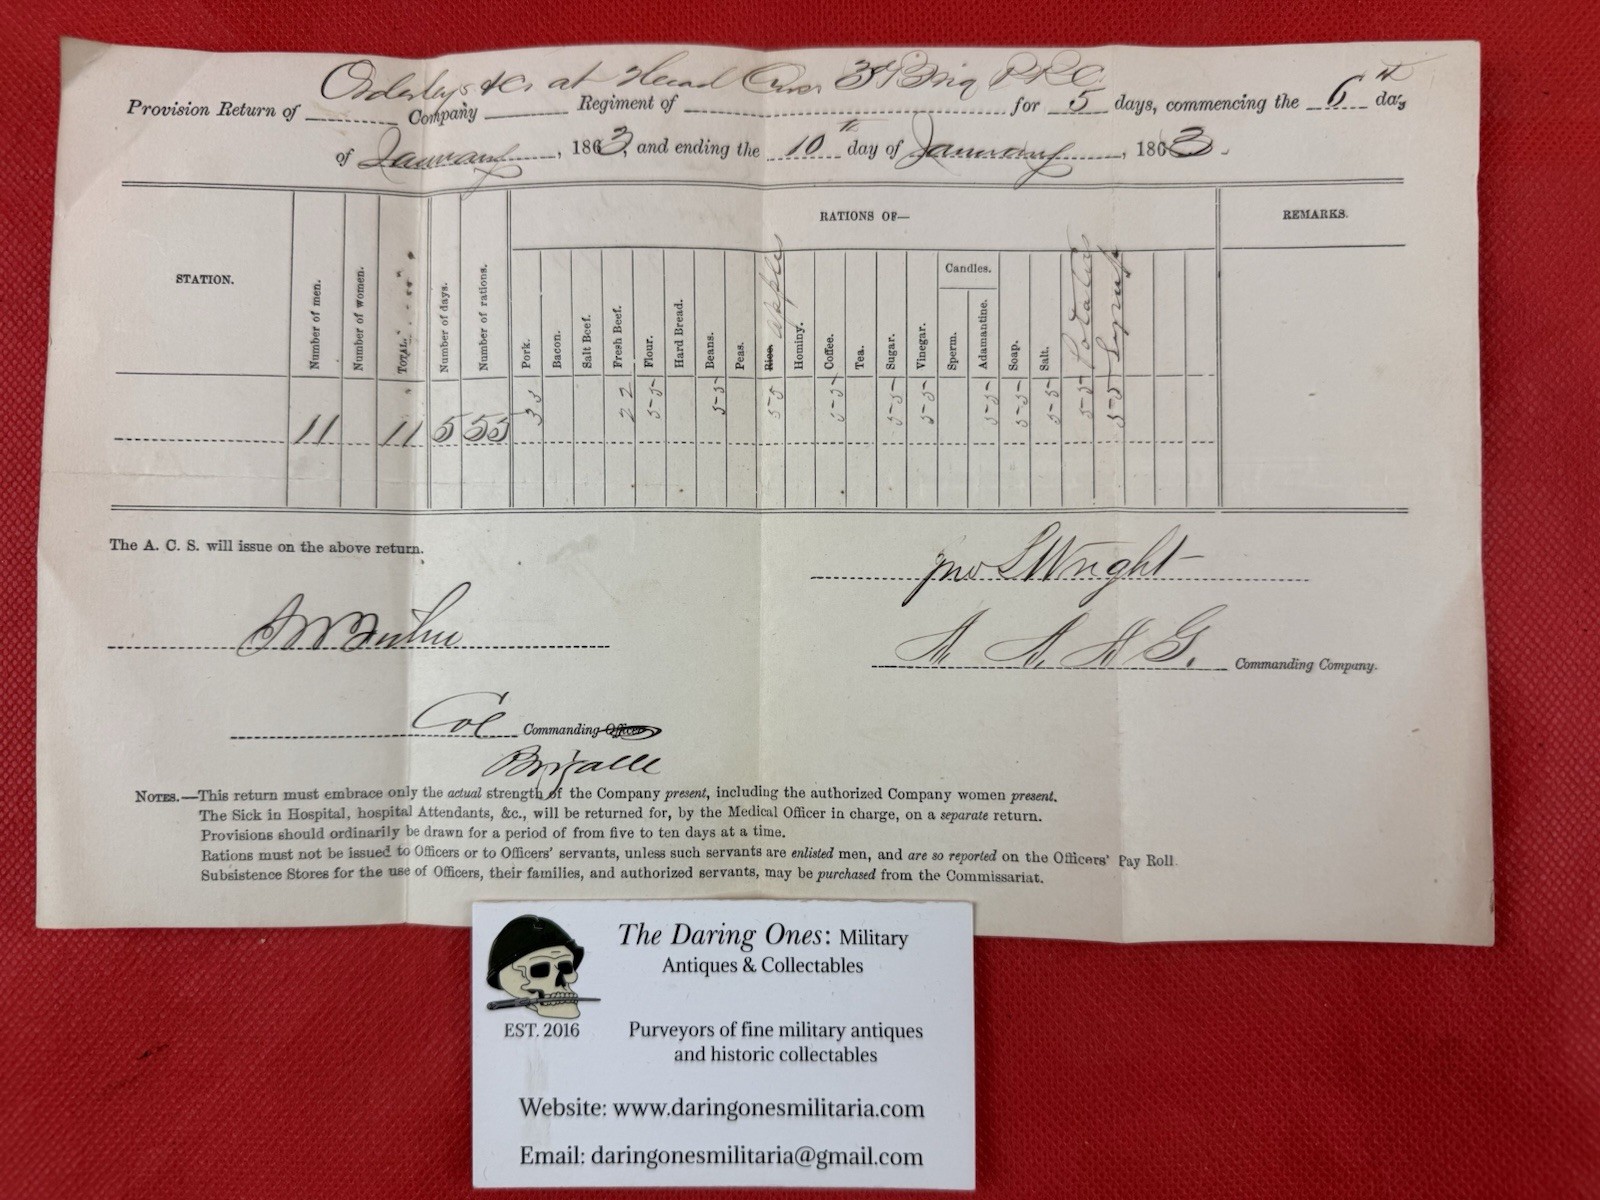 Orderlys &c. at Head Qrs 3d Brig P.R.C.
Provision Return of Company Regiment of for 5 days, commencing the 6th day
of January, 1863, and ending the 10th day of January, 1863.
STATION.
Number of men.
Number of women.
TOTAL.
Number of days.
Number of rations.
RATIONS OF—
REMARKS.
Pork.
Bacon.
Salt Beef.
Fresh Beef.
Flour.
Hard Bread.
Beans.
Peas.
Rice. Apples
Hominy.
Coffee.
Tea.
Sugar.
Vinegar.
Candles.
Sperm.
Adamantine.
Soap.
Salt.
Potatoes
Syrup
11 11 5 55 33 22 55 55 55 55 55 55 55 55 55 55 55
The A. C. S. will issue on the above return.
Jno S Wright
A. A. A. G. Commanding Company.
Col Commanding Officer
Brigade
NOTES.—This return must embrace only the actual strength of the Company present, including the authorized Company women present.
The Sick in Hospital, hospital Attendants, &c., will be returned for, by the Medical Officer in charge, on a separate return.
Provisions should ordinarily be drawn for a period of from five to ten days at a time.
Rations must not be issued to Officers or to Officers' servants, unless such servants are enlisted men, and are so reported on the Officers' Pay Roll.
Subsistence Stores for the use of Officers, their families, and authorized servants, may be purchased from the Commissariat.
The Daring Ones: Military
Antiques & Collectables
EST. 2016
Purveyors of fine military antiques
and historic collectables
Website: www.daringonesmilitaria.com
Email: daringonesmilitaria@gmail.com